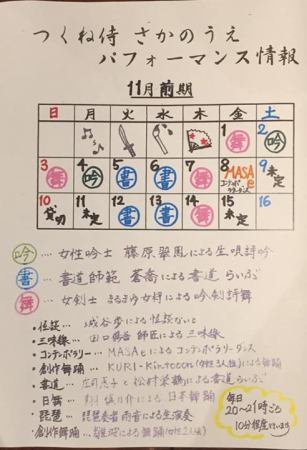 つくね侍 さかのうえ
パフォーマンス情報
11月前期
日 月 火 水 木 金 土
1 舞 2 吟
3 舞 4 吟 5 書 6 書 7 舞 8 MASAe コンテンポラリーダンス 9 未定
10 貸切 11 未定 12 書 13 書 14 舞 15 未定 16
吟 … 女性吟士 藤原翠風による生唄詩吟
書 … 書道師範 蒼喬による書道らいぶ
舞 … 女剣士 による吟剣詩舞
・怪談… 城谷歩による怪談ないと
・三味線… 師匠による三味線
・コンテンポラリー… MASAeによるコンテンポラリーダンス
・創作舞踊… KURI-Kinton (女性3人組)による舞踊
・書道… による書道らいぶ
・日舞… による日本舞踊
・琵琶… 琵琶奏者雨音による生演奏
・創作舞踊… による舞踊(女性2人組)
毎日
20〜21時ごろ
10分程度行います